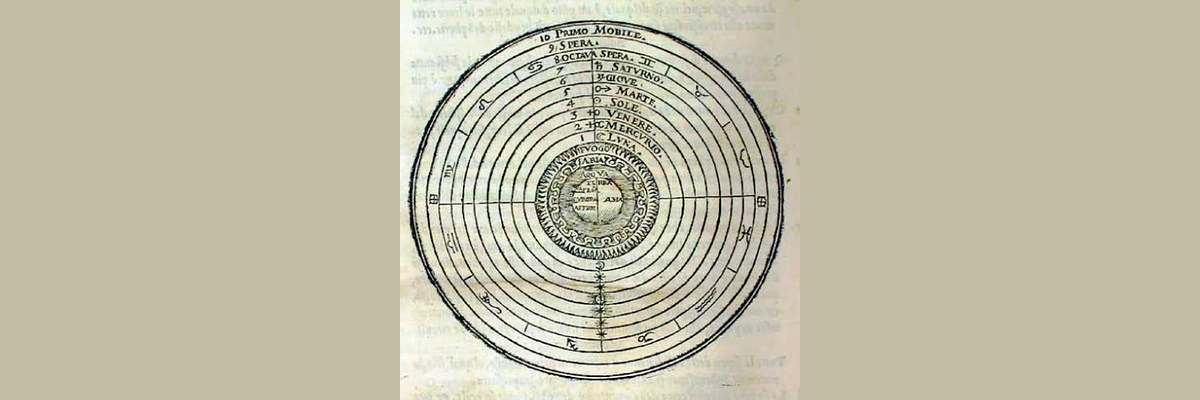 10 PRIMO MOBILE.
9. SPERA.
8. OCTAVA SPERA. ♊
7 ♄ SATVRNO.
6 ♃ GIOVE.
5 ♂ MARTE.
4 ☉ SOLE.
3 ♀ VENERE.
2 ☿ MERCVRIO.
1 ☾ LVNA.
FVOGO
ARIA
AQVA
ASIA